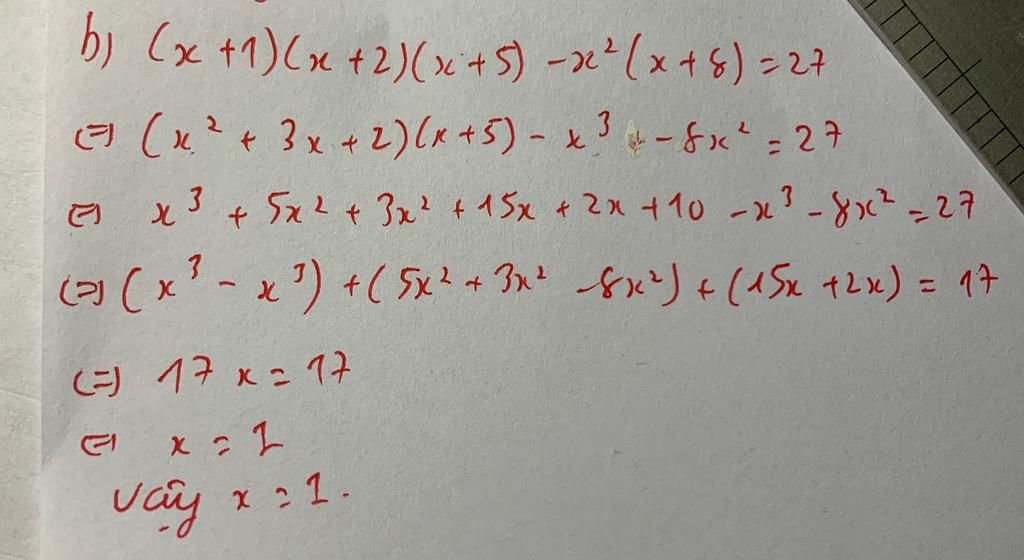 b) (x+1)(x+2)(x+5) -x²(x+8) = 27
(=) (x² + 3x + 2)(x+5) - x³ - 8x² = 27
(=) x³ + 5x² + 3x² + 15x + 2x + 10 - x³ - 8x² = 27
(=) (x³ - x³) + (5x² + 3x² - 8x²) + (15x + 2x) = 17
(=) 17x = 17
(=) x = 1
Vậy x = 1.